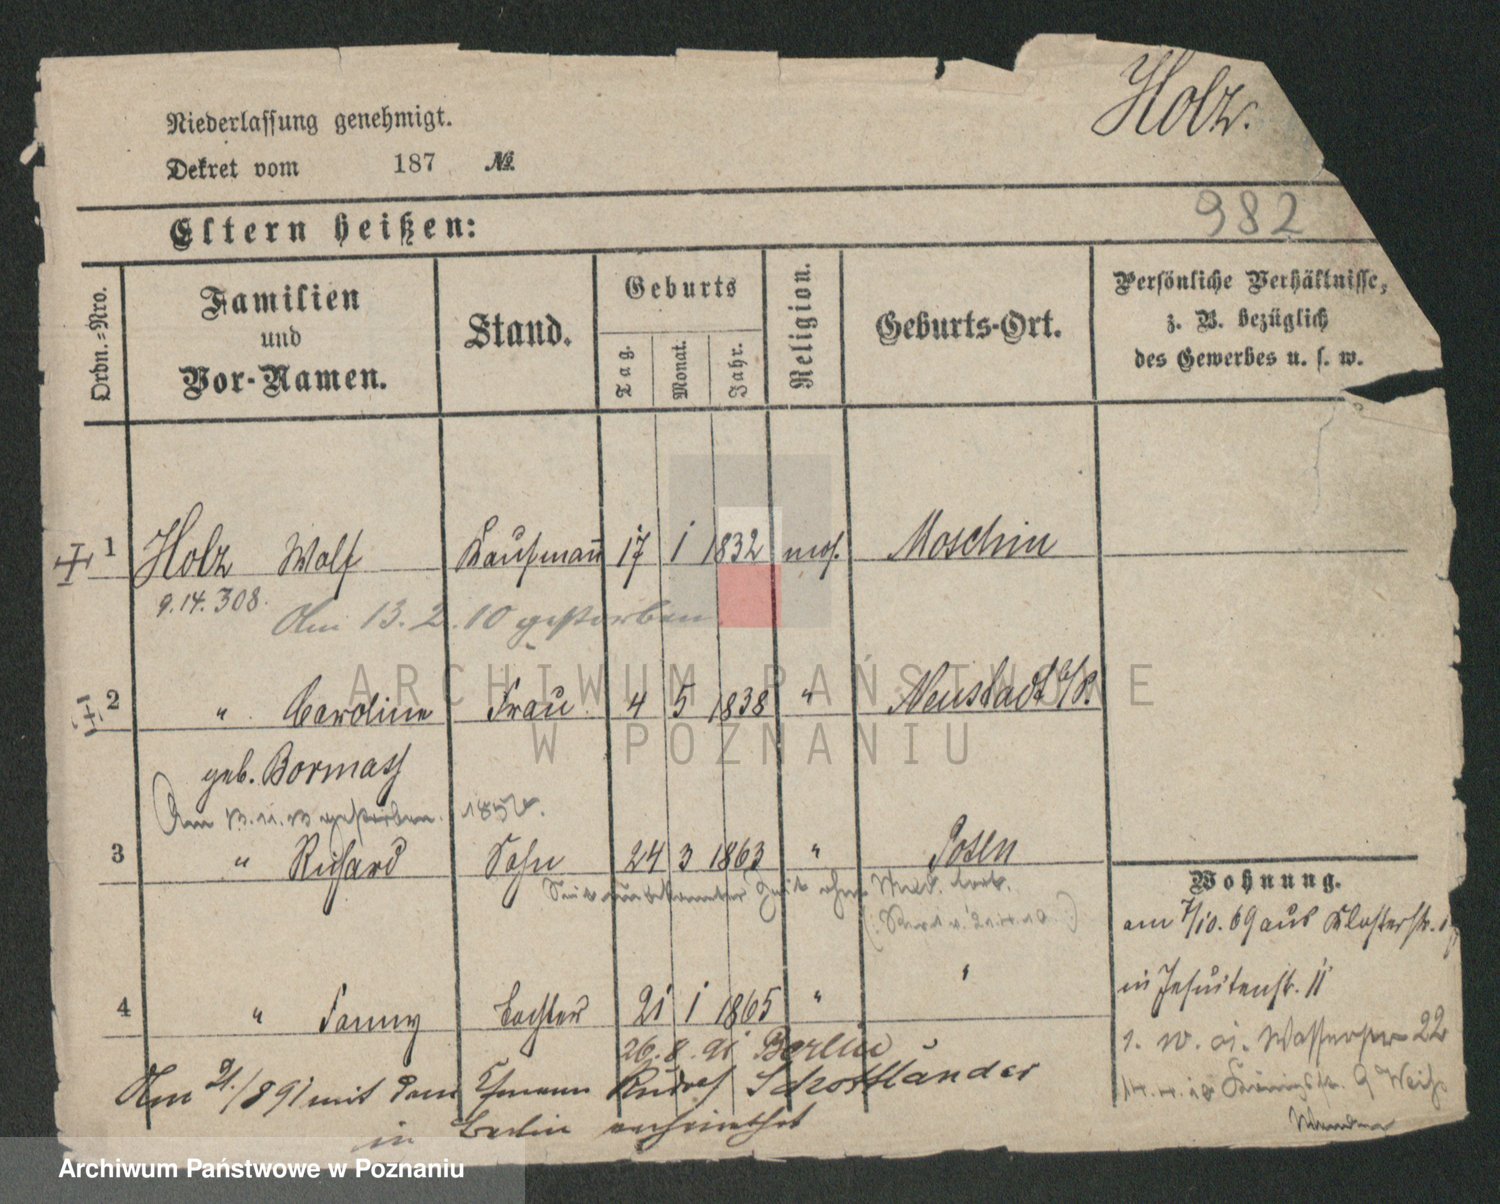 Holz.
Niederlassung genehmigt.
Dekret vom 187 №.
982
Eltern heißen:
Ordn.-Nro.
Familien und Vor-Namen.
Stand.
Geburts
Tag. Monat. Jahr.
Religion.
Geburts-Ort.
Persönliche Verhältnisse,
z. B. bezüglich
des Gewerbes u. s. w.
1 Holz Wolf Kaufmann 17 1 1832 mos. Moschin
9.14.308.
Am 13.2.10 gestorben
2 " Caroline Frau 4 5 1838 " Neustadt b/P.
geb. Bormass
Am gestorben.
3 " Richard Sohn 24 3 1863 " Posen
Seit unbekannter Zeit ohne
4 " Fanny Tochter 21 1 1865 " "
26.8.91 Berlin
Am /891 mit dem Rudolf Schottländer
in Berlin verheirathet
Wohnung.
am 7/10.69 aus Klosterstr.
in Jesuitenstr. 11
Wasserstr 22
9
ARCHIWUM PAŃSTWOWE
W POZNANIU
Archiwum Państwowe w Poznaniu